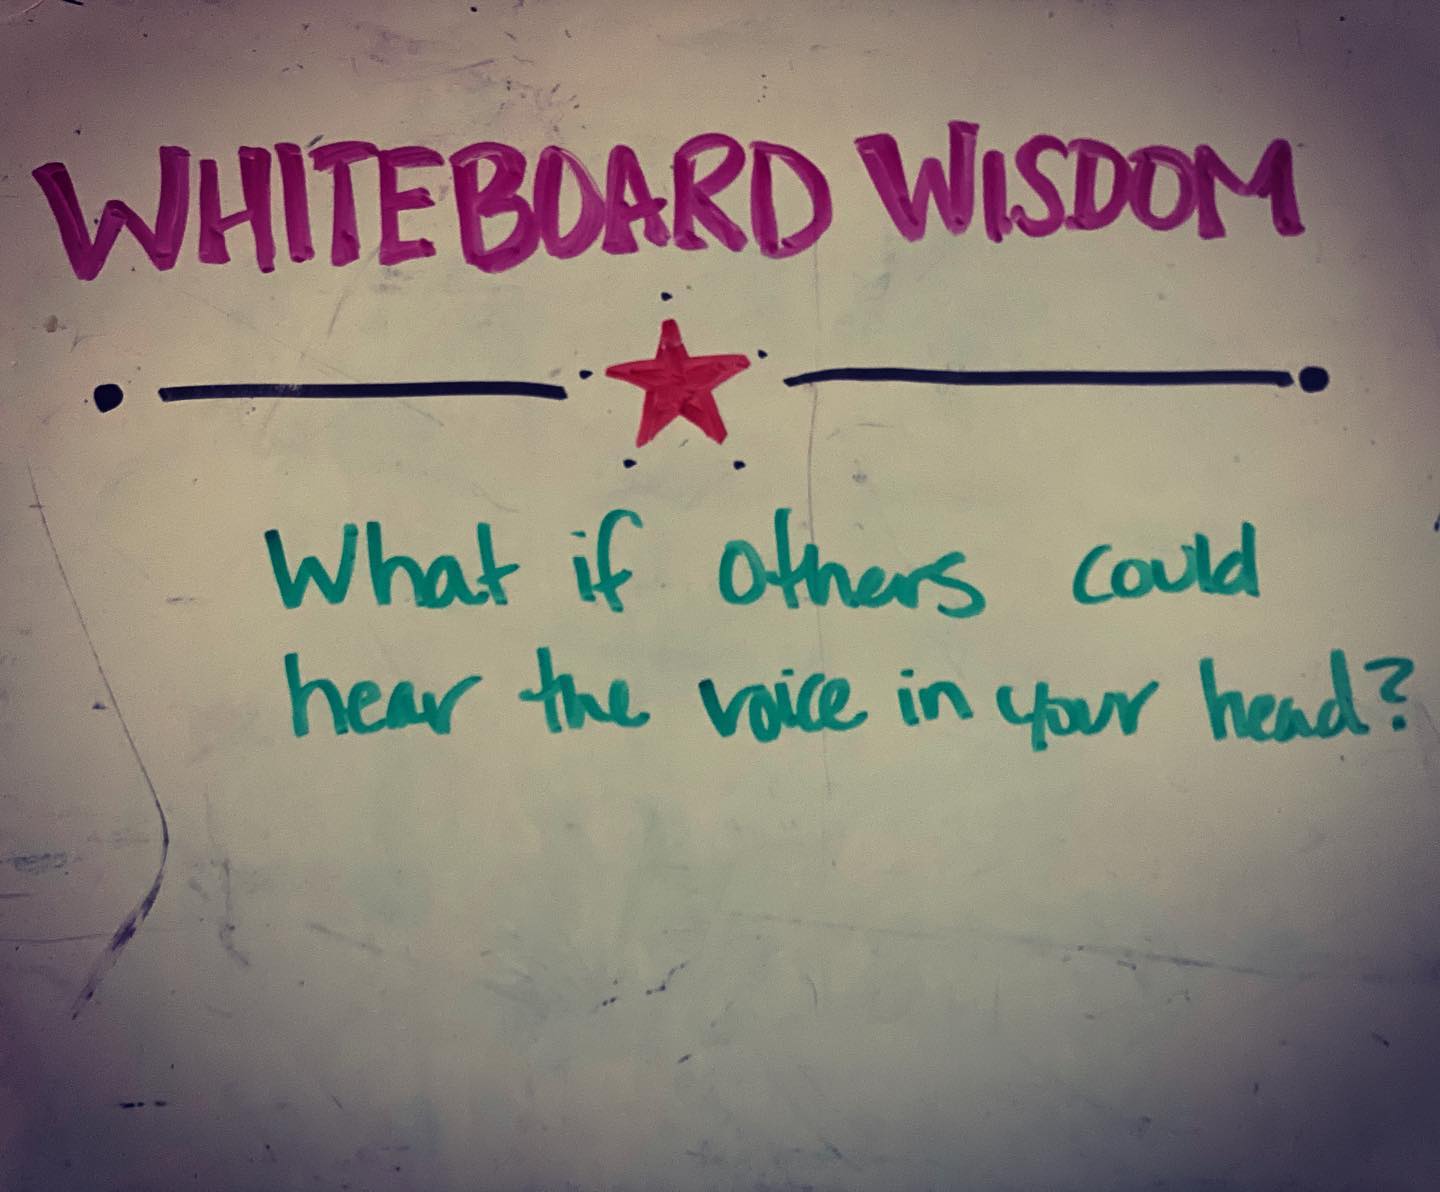 WHITEBOARD WISDOM
What if others could
hear the voice in your head?